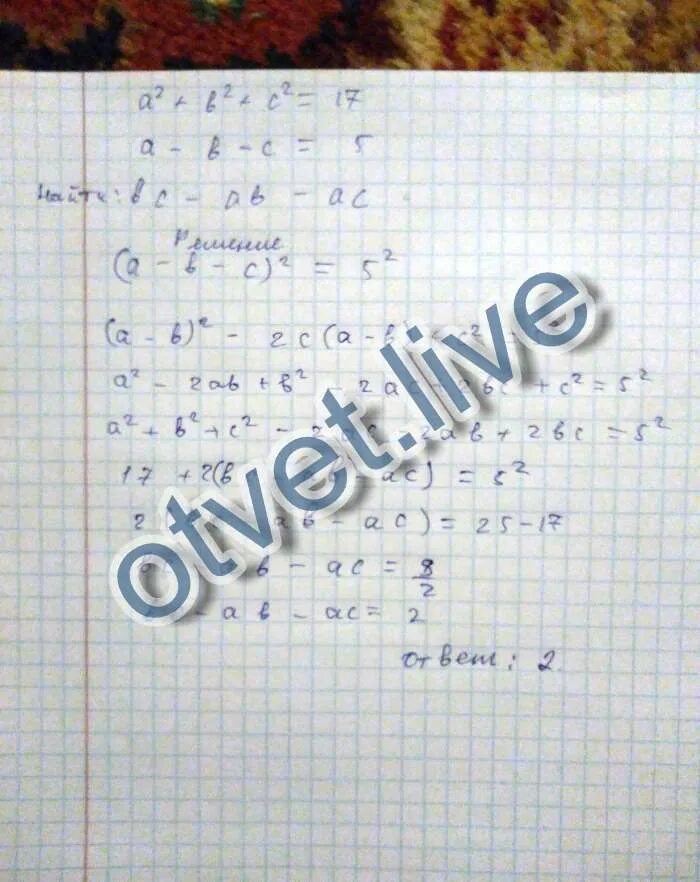 a² + b² + c² = 17
a - b - c = 5
Найти: bc - ab - ac
Решение
(a - b - c)² = 5²
(a - b)² - 2c(a - b
a² - 2ab + b² - 2ac + 2bc + c² = 5²
a² + b² + c² - 2ac - 2ab + 2bc = 5²
17 + 2(b - ac) = 5²
2 ab - ac) = 25 - 17
b - ac = 8/2
- ab - ac = 2
Ответ: 2.
otvet.live